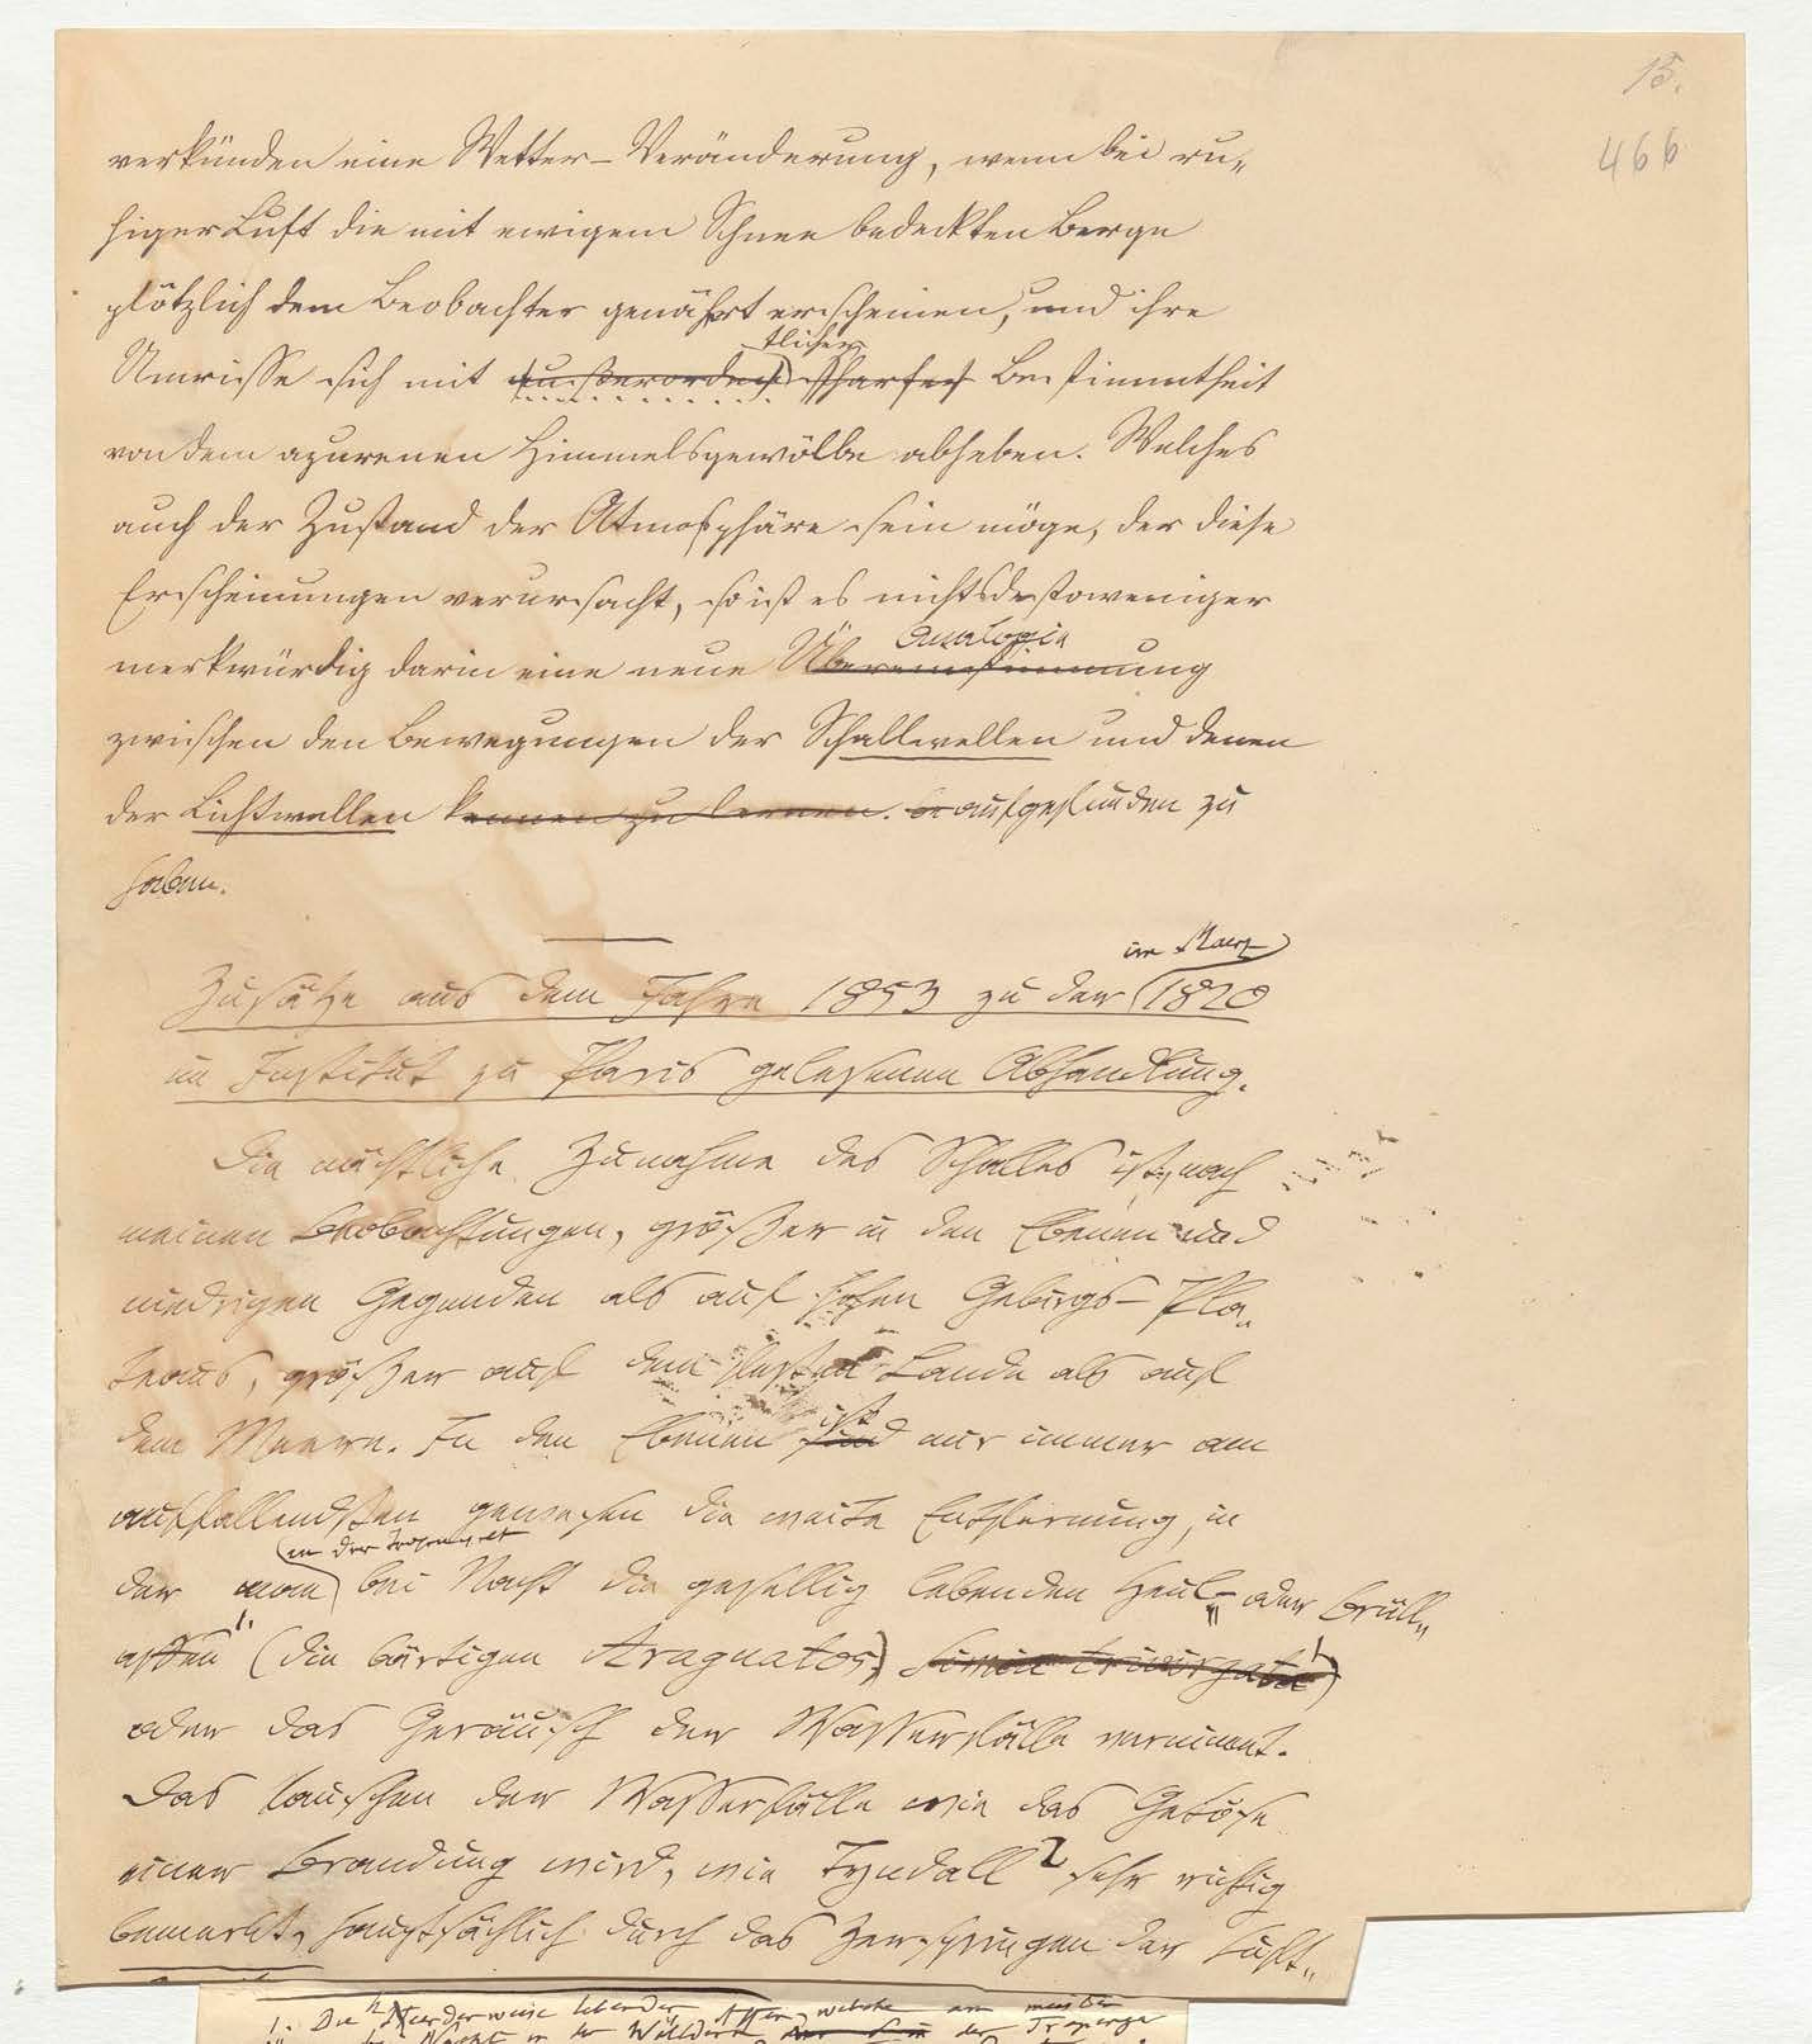 15.
466
verkünden eine Wetter-Veränderung, wenn bei ru„
higer Luft die mit ewigem Schnee bedeckten Berge
plötzlich dem Beobachter genähert erscheinen, und ihre
tlicher
Umrisse sich mit außerorden scharfer Bestimmtheit
von dem azurenen Himmelsgewölbe abheben. Welches
auch der Zustand der Atmosphäre sein möge, der diese
Erscheinungen verursacht, so ist es nichtsdestoweniger
Analogie
merkwürdig darin eine neue Übereinstimmung
zwischen den Bewegungen der Schallwellen und denen
der Lichtwellen kennen zu lernen. aufgefunden zu
haben.
im Maerz
Zusätze aus dem Jahre 1853 zu der 1820
im Institut zu Paris gelesenen Abhandlung.
Die nächtliche Zunahme des Schalles ist, nach
meinen Beobachtungen, größer in den Ebenen und
niedrigen Gegenden als auf hohen Gebirgs-Pla„
teaus, größer auf dem festen Lande als auf
ist
dem Meere. In den Ebenen sind mir immer am
auffallendsten gewesen die weite Entfernung, in
in der Tropenwelt
der man bei Nacht die gesellig lebenden Heul- oder Brüll„
affen 1. (die bärtigen Araguatos) Simia trivirgata)
oder das Geräusch der Wasserfälle vernimmt.
Das Rauschen der Wasserfälle wie das Getöse
einer Brandung wird, wie Tyndall 2 sehr richtig
bemerkt, hauptsächlich durch das Zerspringen der Luft„
1. Die Heerderweise lebenden Affen, welche am meisten
bei Nacht in den Wäldern der Tropengegend